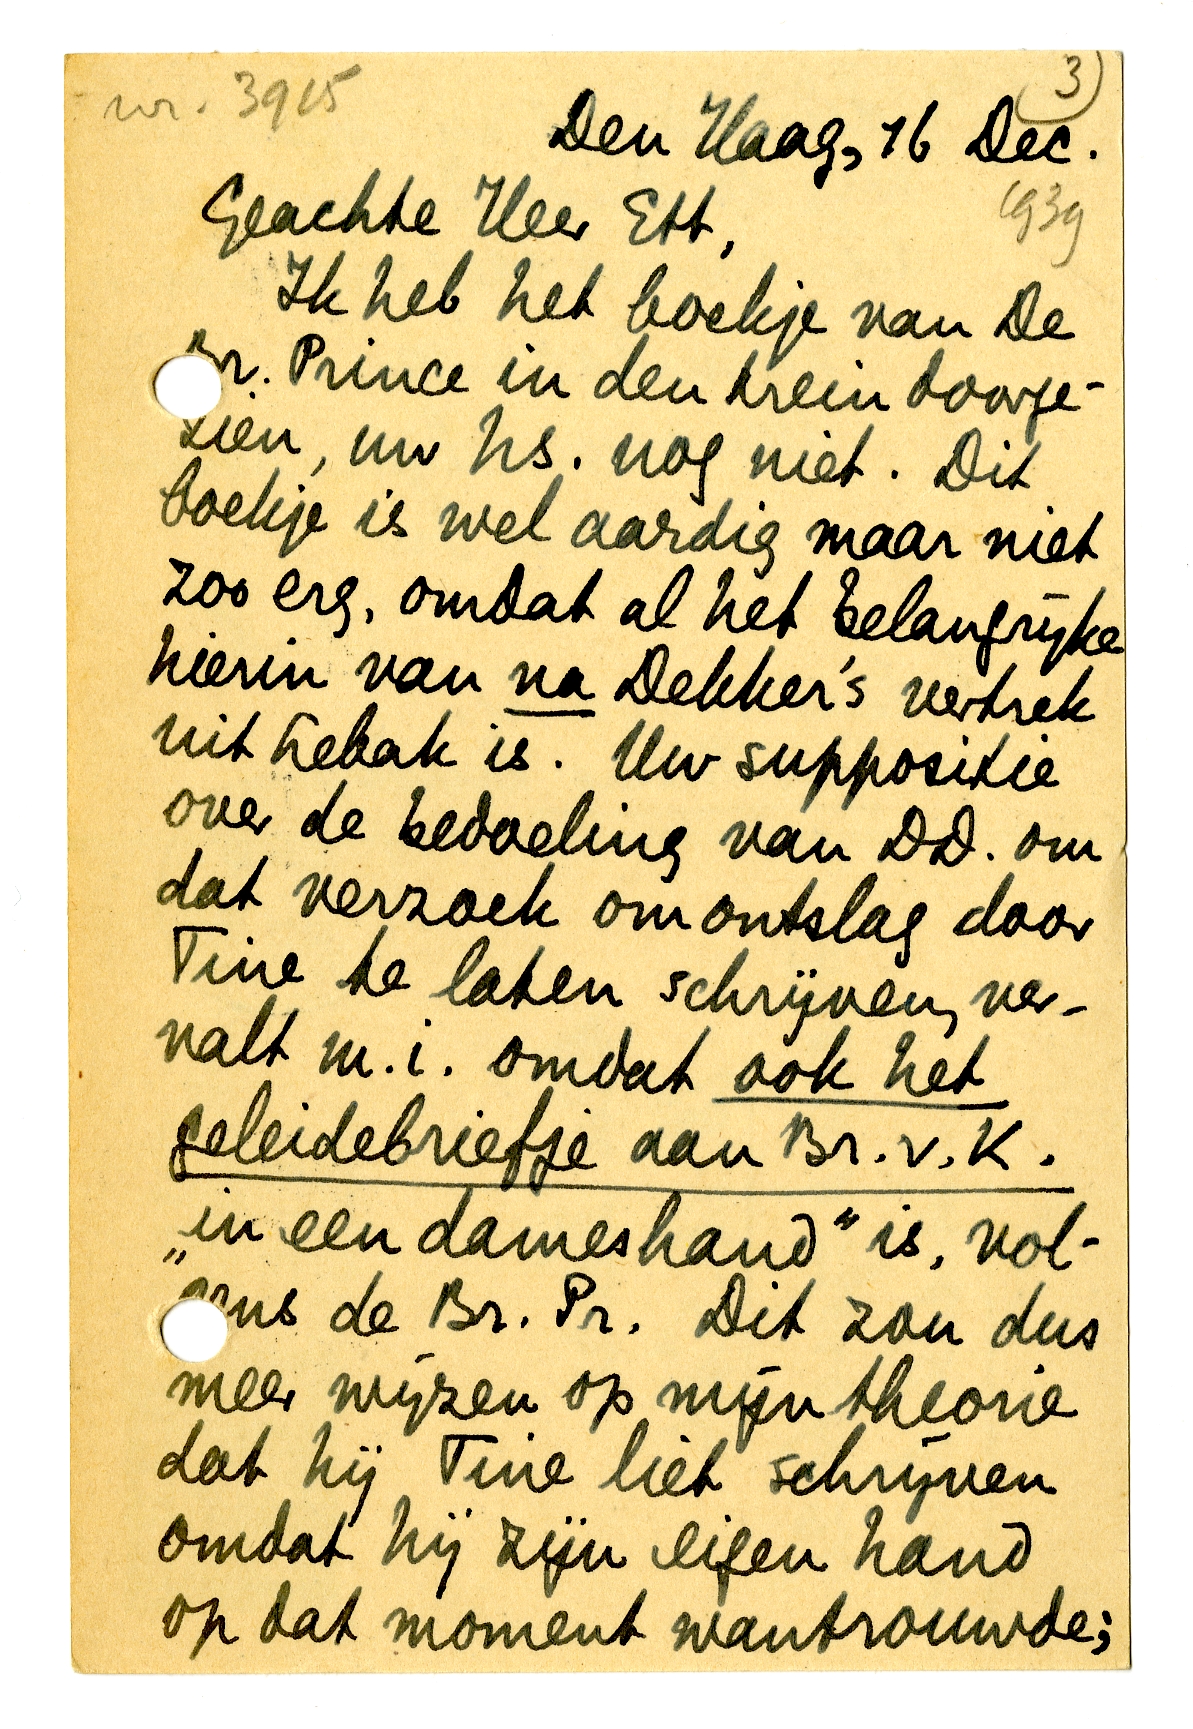 nr. 3915
3)
Den Haag, 16 Dec.
1939
Geachte Heer Ett,
Ik heb het boekje van De
Br. Prince in den trein doorge-
zien, uw hs. nog niet. Dit
boekje is wel aardig maar niet
zoo erg, omdat al het belangrijke
hierin van na Dekker's vertrek
uit Lebak is. Uw suppositie
over de bedoeling van DD. om
dat verzoek om ontslag door
Tine te laten schrijven, ver-
valt m.i. omdat ook het
geleidebriefje aan Br. v. K.
„in een dameshand" is, vol-
gens de Br. Pr. Dit zou dus
meer wijzen op mijn theorie
dat hij Tine liet schrijven
omdat hij zijn eigen hand
op dat moment wantrouwde;